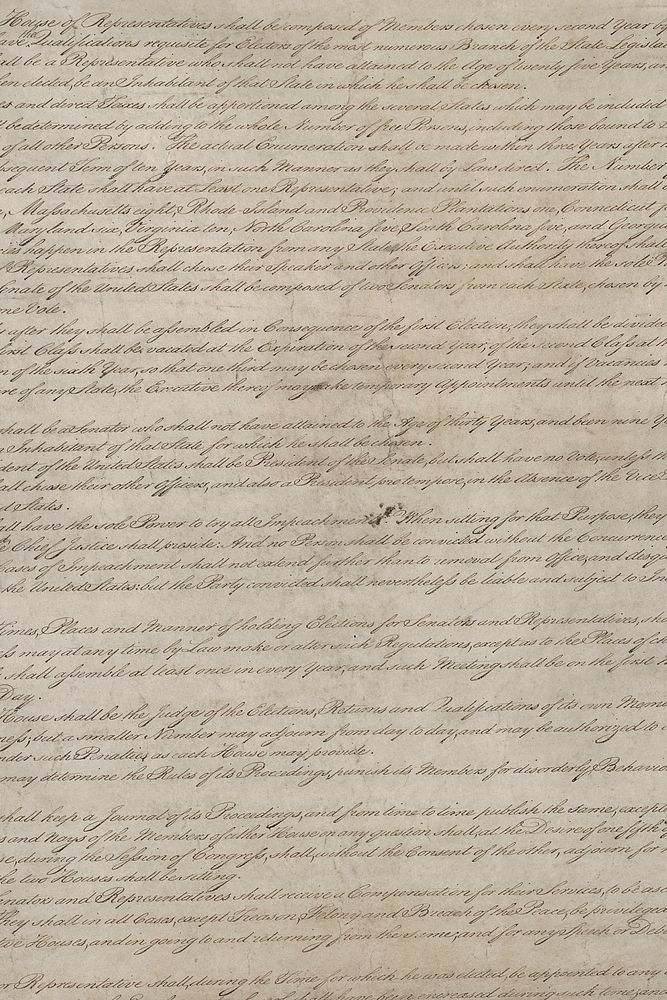 House of Representatives shall be composed of Members chosen every second Year by
the
ave Qualifications requisite for Electors of the most numerous Branch of the State Legisla
all be a Representative who shall not have attained to the Age of twenty five Years, an
hen elected, be an Inhabitant of that State in which he shall be chosen.
es and direct Taxes shall be apportioned among the several States which may be included
l be determined by adding to the whole Number of free Persons, including those bound to
of all other Persons. The actual Enumeration shall be made within three Years after
bsequent Term of ten Years, in such Manner as they shall by Law direct. The Number
each State shall have at Least one Representative; and until such enumeration shall
, Massachusetts eight, Rhode-Island and Providence Plantations one, Connecticut f
Maryland six, Virginia ten, North Carolina five, South Carolina five, and Georgia
ies happen in the Representation from any State, the Executive Authority thereof shall
f Representatives shall chuse their Speaker and other Officers; and shall have the sole P
enate of the United States shall be composed of two Senators from each State, chosen by
ne Vote.
y after they shall be assembled in Consequence of the first Election, they shall be divide
first Class shall be vacated at the Expiration of the second Year, of the second Class at
n of the sixth Year, so that one third may be chosen every second Year; and if Vacancies
re of any State, the Executive thereof may make temporary Appointments until the next
shall be a Senator who shall not have attained to the Age of thirty Years, and been nine Y
n Inhabitant of that State for which he shall be chosen.
dent of the United States shall be President of the Senate, but shall have no Vote, unless th
all chuse their other Officers, and also a President pro tempore, in the Absence of the Vice
d States.
all have the sole Power to try all Impeachments. When sitting for that Purpose, they
e Chief Justice shall preside: And no Person shall be convicted without the Concurrence
Cases of Impeachment shall not extend further than to removal from Office, and disqu
the United States: but the Party convicted shall nevertheless be liable and subject to In
Times, Places and Manner of holding Elections for Senators and Representatives, sha
ess may at any time by Law make or alter such Regulations, except as to the Places of c
s shall assemble at least once in every Year, and such Meeting shall be on the first
Day.
House shall be the Judge of the Elections, Returns and Qualifications of its own Mem
ness; but a smaller Number may adjourn from day to day, and may be authorized to
nder such Penalties as each House may provide.
may determine the Rules of its Proceedings, punish its Members for disorderly Behavio
shall keep a Journal of its Proceedings, and from time to time publish the same, except
s and Nays of the Members of either House on any question shall, at the Desire of one fifth
se, during the Session of Congress, shall, without the Consent of the other, adjourn for
he two Houses shall be sitting.
enators and Representatives shall receive a Compensation for their Services, to be asc
They shall in all Cases, except Treason, Felony and Breach of the Peace, be privileged
tive Houses, and in going to and returning from the same; and for any Speech or Deba
or Representative shall, during the Time for which he was elected, be appointed to any
shall have been increased during such time; and